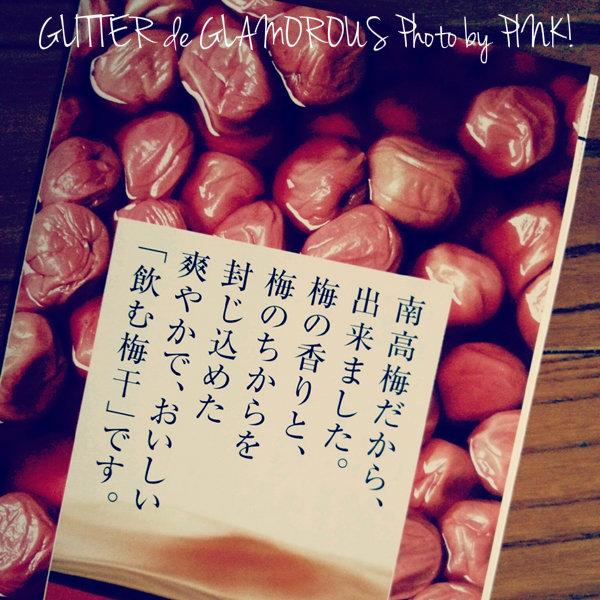 GLITTER de GLAMOROUS Photo by PINK!
南高梅だから、
出来ました。
梅の香りと、
梅のちからを
封じ込めた
爽やかで、おいしい
「飲む梅干」です。